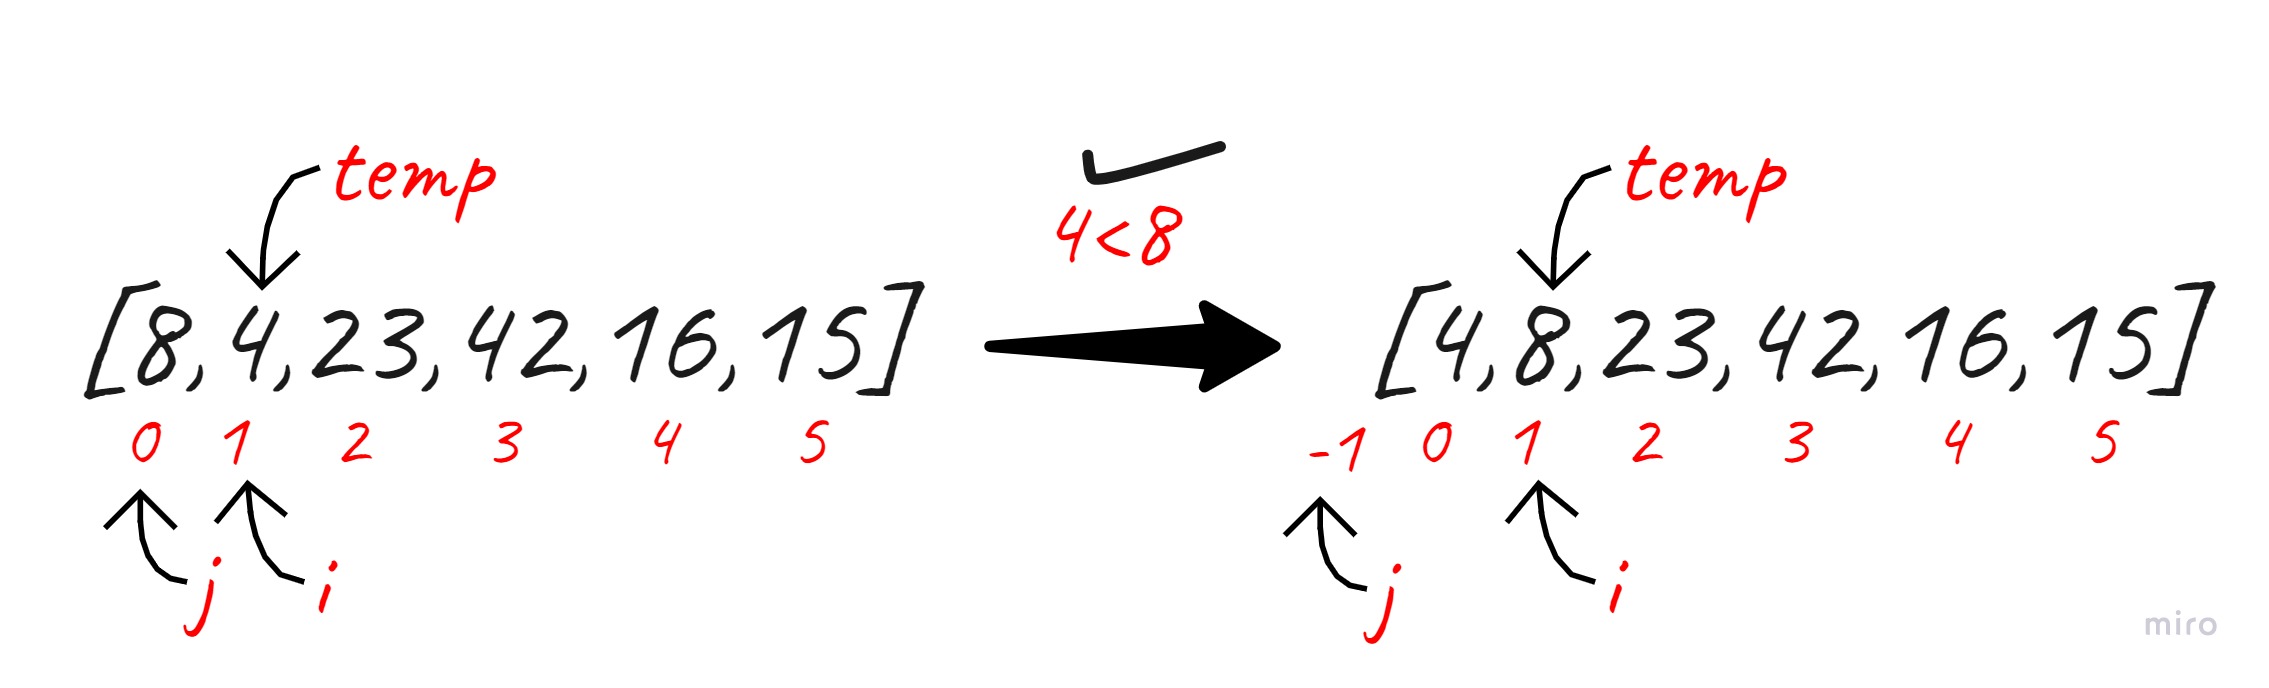 temp
[8,4,23,42,16,15]
0 1 2 3 4 5
j i
4<8
temp
[4,8,23,42,16,15]
-1 0 1 2 3 4 5
j i
miro